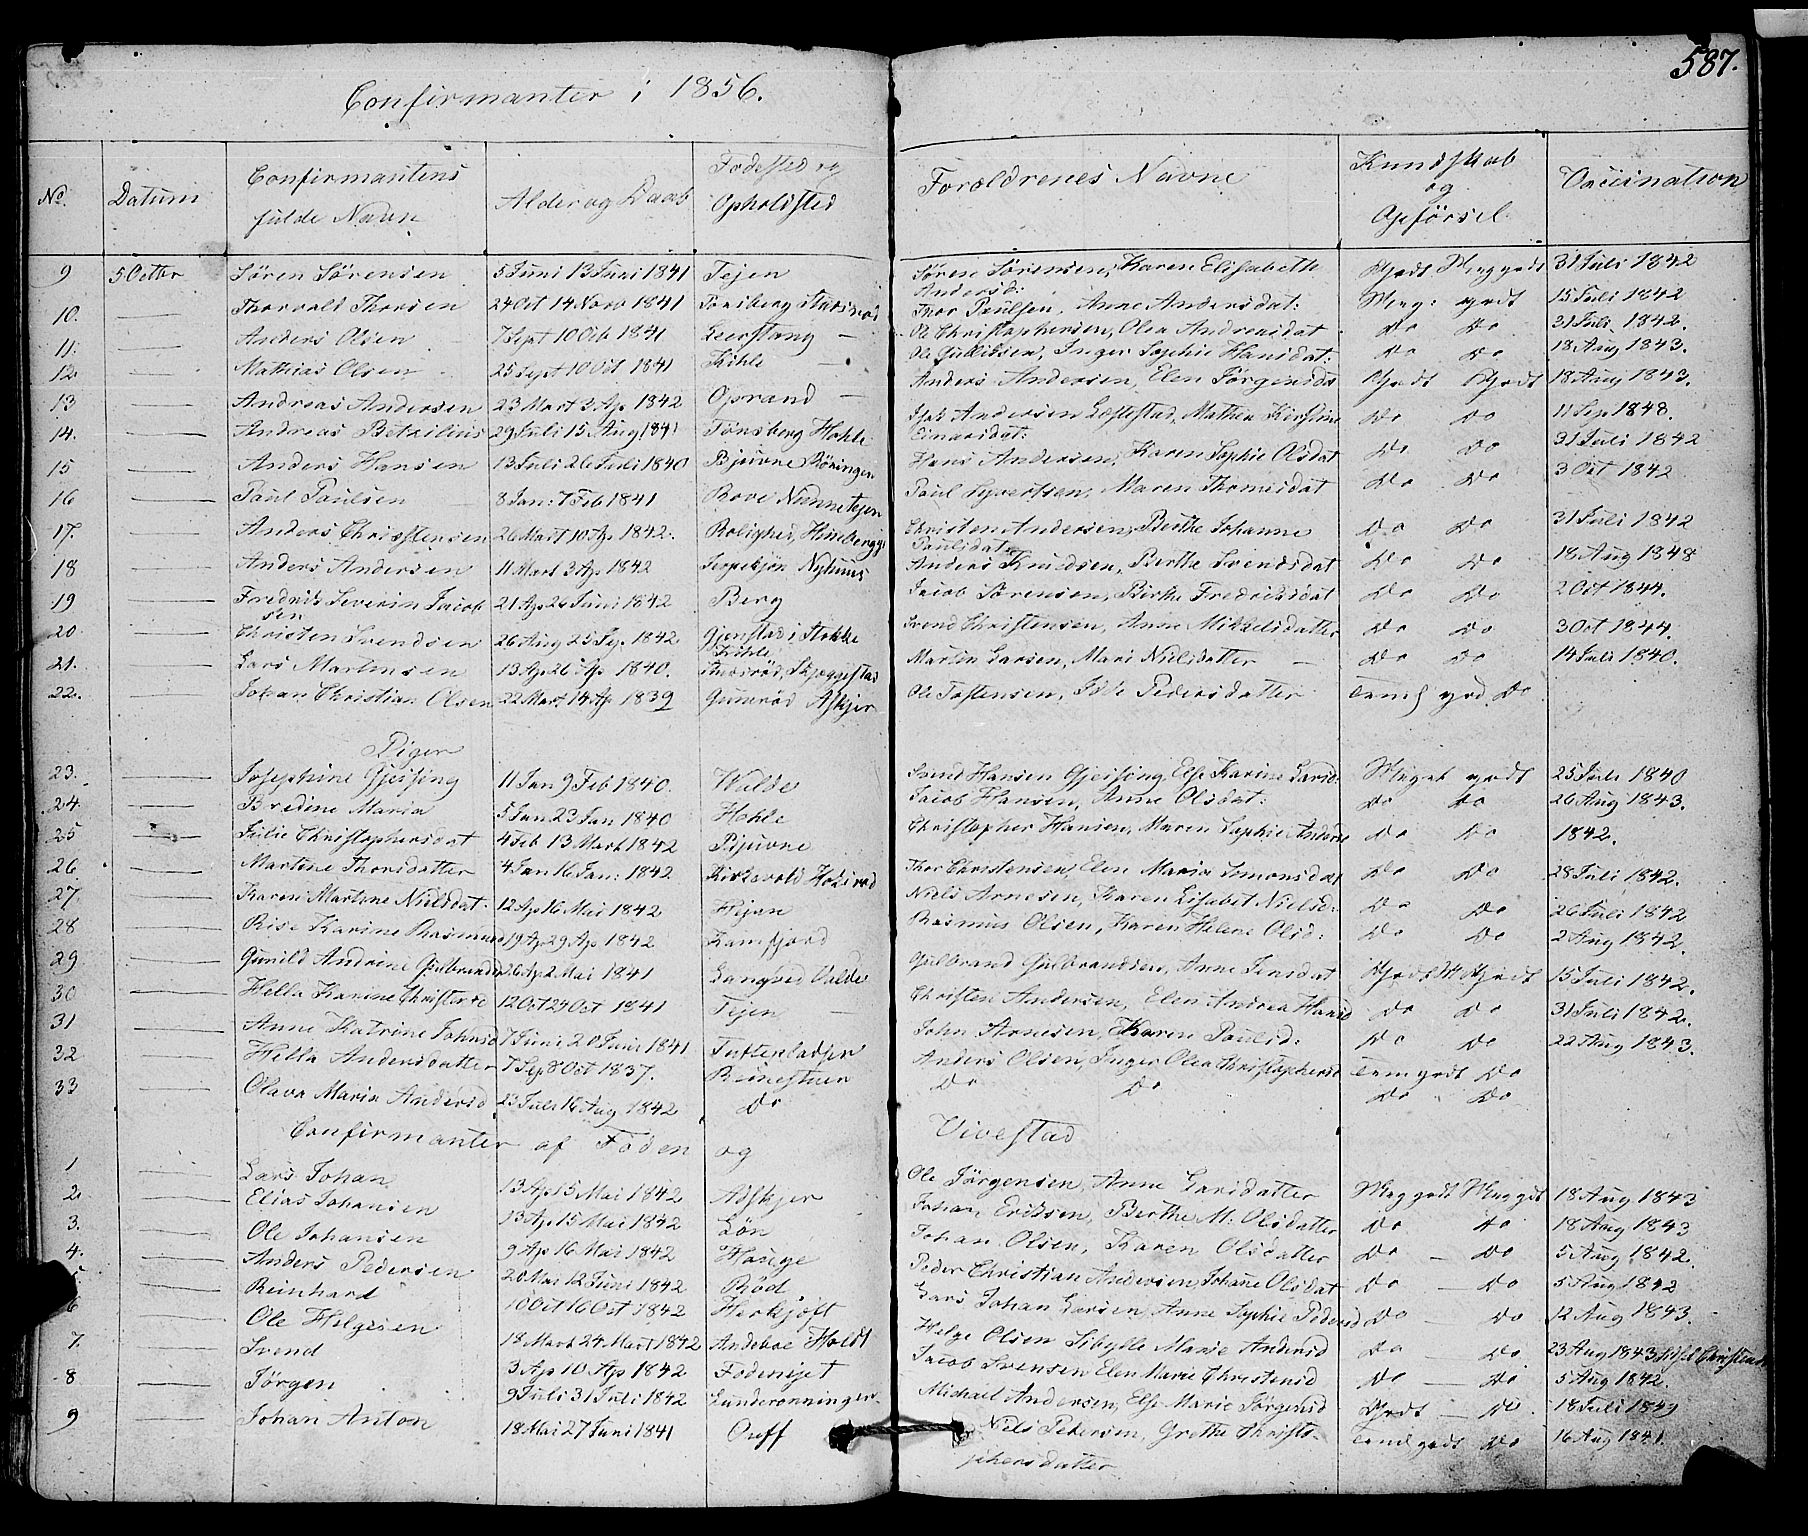 587.
Confirmanter i 1856.
No. Datum Confirmantens fulde Navn Alder og Daab Fødested og Opholdsted Forældrenes Navne Kundskab og Opførsel. Vaccination
9 5 Octbr Søren Sørensen 5 Juni 13 Juni 1841 Tejen Søren Sørensen, Karen Elisabeth Andersd: Godt Meg godt 31 Juli 1842
10. — Thorvald Thorsen 24 Oct 14 Novb 1841 Thor Paulsen, Anne Andersdat: Meg: godt 15 Juli 1842
11. — Anders Olsen 7 Sept 10 Octb 1841 Leerstang — Ole Christophersen, Olea Andreasdat Do Do 31 Juli 1842.
12 — Mathias Olsen 25 Sept 10 Oct 1841 Kihle — Ole Gulliksen, Inger Sophie Hansdat: Do Do 18 Aug 1843.
13 — Andreas Andersen 23 Mart 3 Ap 1842 Oprand — Anders Andersen, Elen Jørgensd Godt Godt 18 Aug 1843.
14. — Andreas Betzilius 29 Juli 15 Aug 1841 Tønsberg Hohle Andersen Mathea Kirstine Einarsdat: Do Do 11 Sep 1848.
15 — Anders Hansen 13 Juli 26 Juli 1840 Bjuvne Røningen Hans Andersen, Karen Sophie Olsdat Do Do 31 Juli 1842
16 — Paul Paulsen 3 Jan: 7 Feb 1841 Rove Paul Syvertsen, Maren Thomesdat Do Do 3 Oct 1842
17. — Anders Christensen 26 Mart 10 Ap 1842. Rolighed, Christen Andersen, Berthe Johanne Paulsdat Do Do 31 Juli 1842
18 — Anders Andersen 11 Mart 3 Ap 1842 Anders Knudsen, Berthe Svendsdat Do Do 18 Aug 1848
19 — Fredrik Severin Jacobsen 21 Ap 26 Juni 1842 Berg Jacob Sørensen, Birthe Fredriksdat Do Do 2 Oct 1844.
20. — Christen Svendsen 26 Aug 25 Sep. 1842. Gjenstad i Stokke Svend Christensen, Anne Mikkelsdatter Do Do 3 Oct 1844.
21. — Lars Martinsen 13 Ap 26 Ap 1840. Kihle Skjeggestad Martin Larsen, Mari Nielsdatter — Do Do 14 Juli 1840.
22. — Johan Christian Olsen 22 Mart 14 Ap 1839 Gunerød Askjer Ole Tostensen, Idde Pedersdatter Teml god Do
Piger
23. — Josephine Gjersing 11 Jan 9 Feb 1840. Walde Svend Hansen Gjersing, Else Karine Larsd: Meget godt 25 Juli 1840
24. — Bredine Maria 5 Jan 23 Jan 1840 Hohle Jacob Hansen, Anne Olsdat: Do Do 26 Aug 1843.
25 — Julie Christophersdat 4 Feb 13 Mart 1842 Bjuvne Christopher Hansen, Maren Sophie Anders Do Do 1842.
26 — Martene Thorsdatter 4 Jan 16 Jan: 1842 Kirkevold Thor Christensen, Elen Maria Simonsdat Do Do 28 Juli 1842.
27. — Karen Martine Nielsdat. 12 Ap 16 Mai 1842 Hejan Niels Arnesen, Karen Lisabet Nielsd: Do Do 26 Juli 1842
28 — Rise Karine Rasmusd 19 Ap 29 Ap 1842 Kamfjord Rasmus Olsen, Karen Helene Olsd: Do Do 2 Aug 1842.
29 — Gunild Andrine Gulbrandsd 26 Ap 2 Mai 1841 Langved Valde Gulbrand Gulbrandsen, Anne Jensdat Godt M Godt 15 Juli 1842.
30 — Hella Karine Christensd 12 Oct 24 Oct 1841 Tejen — Christen Andersen, Elen Andrea Hansd Do Do 31 Juli 1842.
31 — Anne Katrine Johnsd 7 Juni 20 Juni 1841 John Arnesen, Karen Paulsd: Do Do 22 Aug 1843.
32 — Hella Andersdatter 7 Sep 8 Oct 1837. Anders Olsen, Inger Olea Christophersd Tem godt Do
33 — Olava Maria Andersd 23 Juli 16 Aug 1842 Do Do Do Do Do
Confirmanter af Foden og Vivestad
1 — Lars Johan 13 Ap 5 Mai 1842 Adskjer Ole Jørgensen, Anne Larsdatter Meg godt Meg godt 18 Aug 1843
2. — Elias Johansen 13 Ap 15 Mai 1842 Løn Johan Eriksen, Berthe M: Olsdatter Do Do 18 Aug 1843
3. — Ole Johansen 9 Ap 16 Mai 1842 Hauge Johan Olsen, Karen Olsdatter Do — Do 5 Aug 1842.
4. — Anders Pedersen 20 Mai 12 Juni 1842 Rød Peder Christian Andersen, Johane Olsdat Do — Do 5 Aug 1842
5 — Reinhart 10 Oct 16 Oct 1842 Lars Johan Larsen, Anne Sophie Pedersd Do — Do 12 Aug 1843.
6 — Ole Helgesen 18 Mart 24 Mart 1842 Andeboe Holdt Helge Olsen Sibylle Marie Andersd Do Do 23 Aug 1843
7. — Svend 3 Ap 10 Ap 1842 Fodenejet Jacob Svensen Elen Marie Christensd Do — Do 5 Aug 1842.
8 — Jørgen 9 Juli 31 Juli 1842 Michael Andersen, Else Marie Jørgensd Godt — Do 18 Juli 1849
9 — Johan Anton 18 Mai 27 Juni 1841 Oreff Niels Petersen, Grethe Christophersdatter. Teml godt Do 16 Aug 1841.